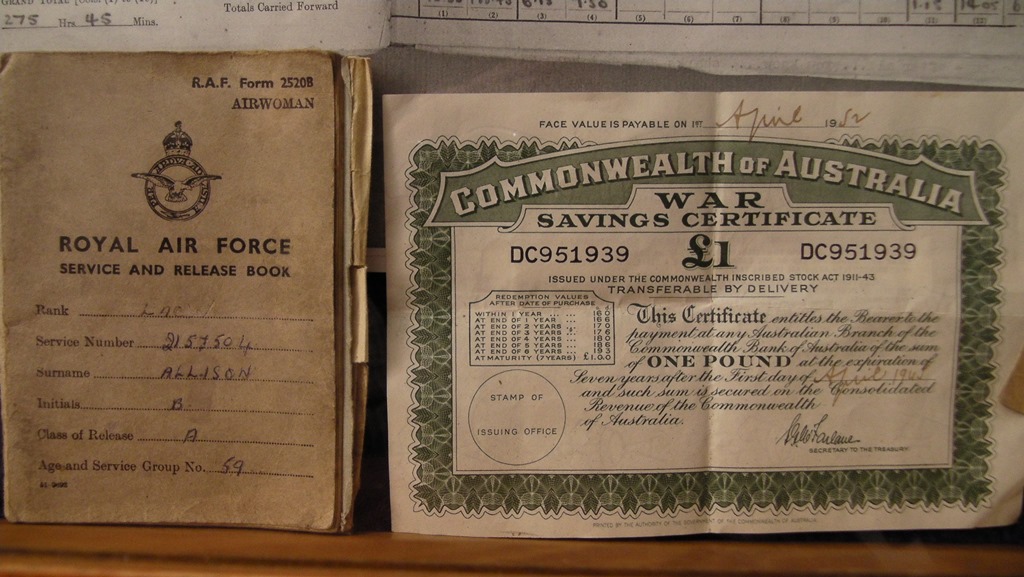 GRAND TOTAL
275 Hrs. 45 Mins.
Totals Carried Forward
(1) (2) (3) (4) (5) (6) (7) (8) (9) (10)
R.A.F. Form 2520B
AIRWOMAN
ROYAL AIR FORCE
SERVICE AND RELEASE BOOK
Rank LAC
Service Number 2157504
Surname ALLISON
Initials B
Class of Release A
Age and Service Group No. 59
FACE VALUE IS PAYABLE ON 1ST April 1952
COMMONWEALTH OF AUSTRALIA
WAR
SAVINGS CERTIFICATE
DC951939 £1 DC951939
ISSUED UNDER THE COMMONWEALTH INSCRIBED STOCK ACT 1911-43
TRANSFERABLE BY DELIVERY
REDEMPTION VALUES
AFTER DATE OF PURCHASE
WITHIN 1 YEAR ... ... 16 0
AT END OF 1 YEAR ... 16 6
AT END OF 2 YEARS ... 17 0
AT END OF 3 YEARS ... 17 6
AT END OF 4 YEARS ... 18 0
AT END OF 5 YEARS ... 18 6
AT END OF 6 YEARS ... 19 3
AT MATURITY (7 YEARS) £1.0.0
This Certificate entitles the Bearer to the
payment at any Australian Branch of the
Commonwealth Bank of Australia of the sum
of ONE POUND at the expiration of
Seven years after the First day of April 1945
and such sum is secured on the Consolidated
Revenue of the Commonwealth
of Australia.
STAMP OF
ISSUING OFFICE
SECRETARY TO THE TREASURY
PRINTED BY THE AUTHORITY OF THE GOVERNMENT OF THE COMMONWEALTH OF AUSTRALIA